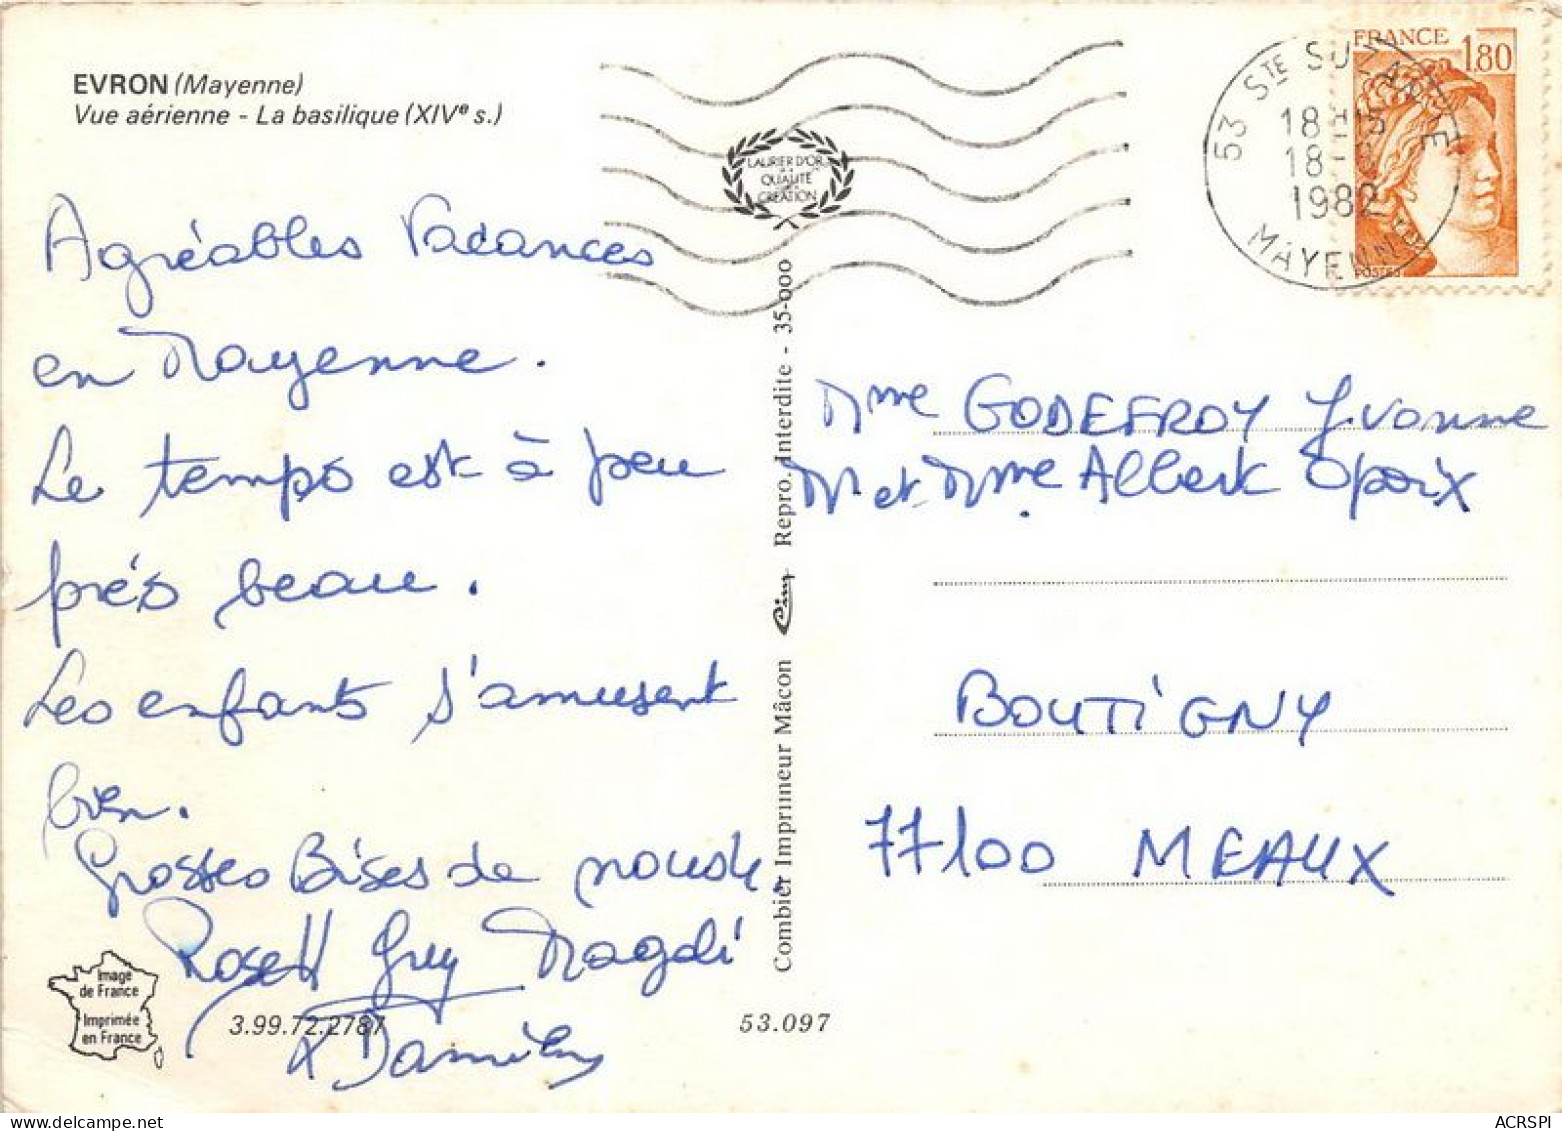 EVRON (Mayenne)
Vue aérienne - La basilique (XIVe s.)
Agréables Vacances
en Mayenne.
Le temps est à peu
prés beau.
Les enfants s'amusent
bien.
Grosses Bises de nous
Guy Magali
Image
de France
Imprimée
en France
3.99.72.2787
53.097
LAURIER D'OR
DE LA
QUALITÉ
CRÉATION
Combier Imprimeur Mâcon
Cim
Repro. Interdite - 35-000
FRANCE
1,80
POSTES
53 STE SUZANNE
18H15
18-
1982
MAYENNE
Mme GODEFROY Yvonne
M et Mme Albert Opoix
BOUTIGNY
77100 MEAUX
ACRSPI